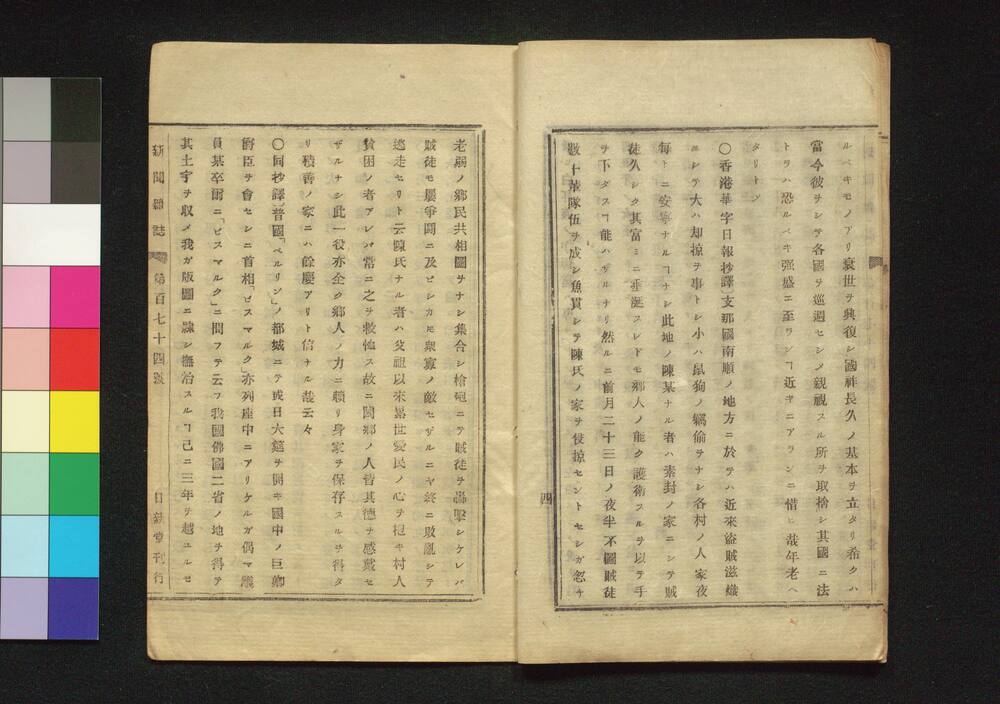 ルベキモノアリ衰世ヲ興復シ國祚長久ノ基本ヲ立タリ希クハ
當今彼ヲシテ各國ヲ巡廻セシメ親視スル所ヲ取捨シ其國ニ法
トラハ恐ルベキ强盛ニ至ランヿ近キニアランニ惜ヒ哉年老ヘ
タリトゾ
〇香港華字日報抄譯支那國南順ノ地方ニ於テハ近來盜賊滋熾
ニシテ大ハ却掠ヲ事トシ小ハ鼠狗ノ竊偷ヲナシ各村ノ人家夜
每トニ安寧ナルヿナシ此地ノ陳某ナル者ハ素封ノ家ニシテ賊
徒久シク其富ミニ垂涎スレドモ鄕人ノ能ク護衛スルヲ以テ手
ヲ下タスヿ能ハザルナリ然ルニ前月二十三日ノ夜半不圖賊徒
數十輩隊伍ヲ成シ魚貫シテ陳氏ノ家ヲ侵掠セントセシガ忽チ
四
老弱ノ鄕民共相圖ヲナシ集合シ槍砲ニテ賊徒ヲ轟擊シケレバ
賊徒モ屢爭鬪ニ及ビシカ𪜈衆寡ノ敵セザルニヤ終ニ敗亂シテ
逃走セリト云陳氏ナル者ハ父祖以來累世愛民ノ心ヲ抱キ村人
貧困ノ者アレバ常ニ之ヲ救恤ス故ニ闔鄕ノ人皆其德ヲ感戴セ
ザルナシ此一役亦全ク鄕人ノ力ニ賴リ身家ヲ保存スルヲ得タ
リ積善ノ家ニハ餘慶アリト信ナル哉云々
〇同抄譯普國「ベルリン」ノ都城ニテ或日大筵ヲ開キ國中ノ巨卿
爵臣ヲ會セシニ首相「ビスマルク」亦列座中ニアリケルガ偶マ議
員某卒爾ニ「ビスマルク」ニ問フテ云フ我國佛國二省ノ地ヲ得テ
其土宇ヲ收メ我ガ版圖ニ隸シ撫治スルヿ已ニ三年ヲ越ユルセ
新聞雜誌 第百七十四號 日新堂刊行